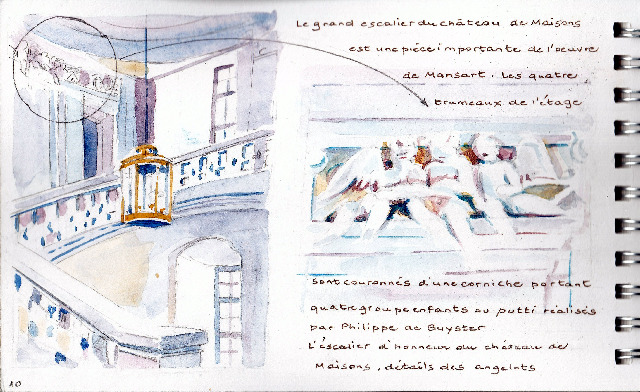 Le grand escalier du château de Maisons
est une pièce importante de l'oeuvre
de Mansart. Les quatre
trumeaux de l'étage
sont couronnés d'une corniche portant
quatre groupe enfants ou putti réalisés
par Philippe de Buyster
L'éscalier d'honneur du château de
Maisons, détails des angelots
10